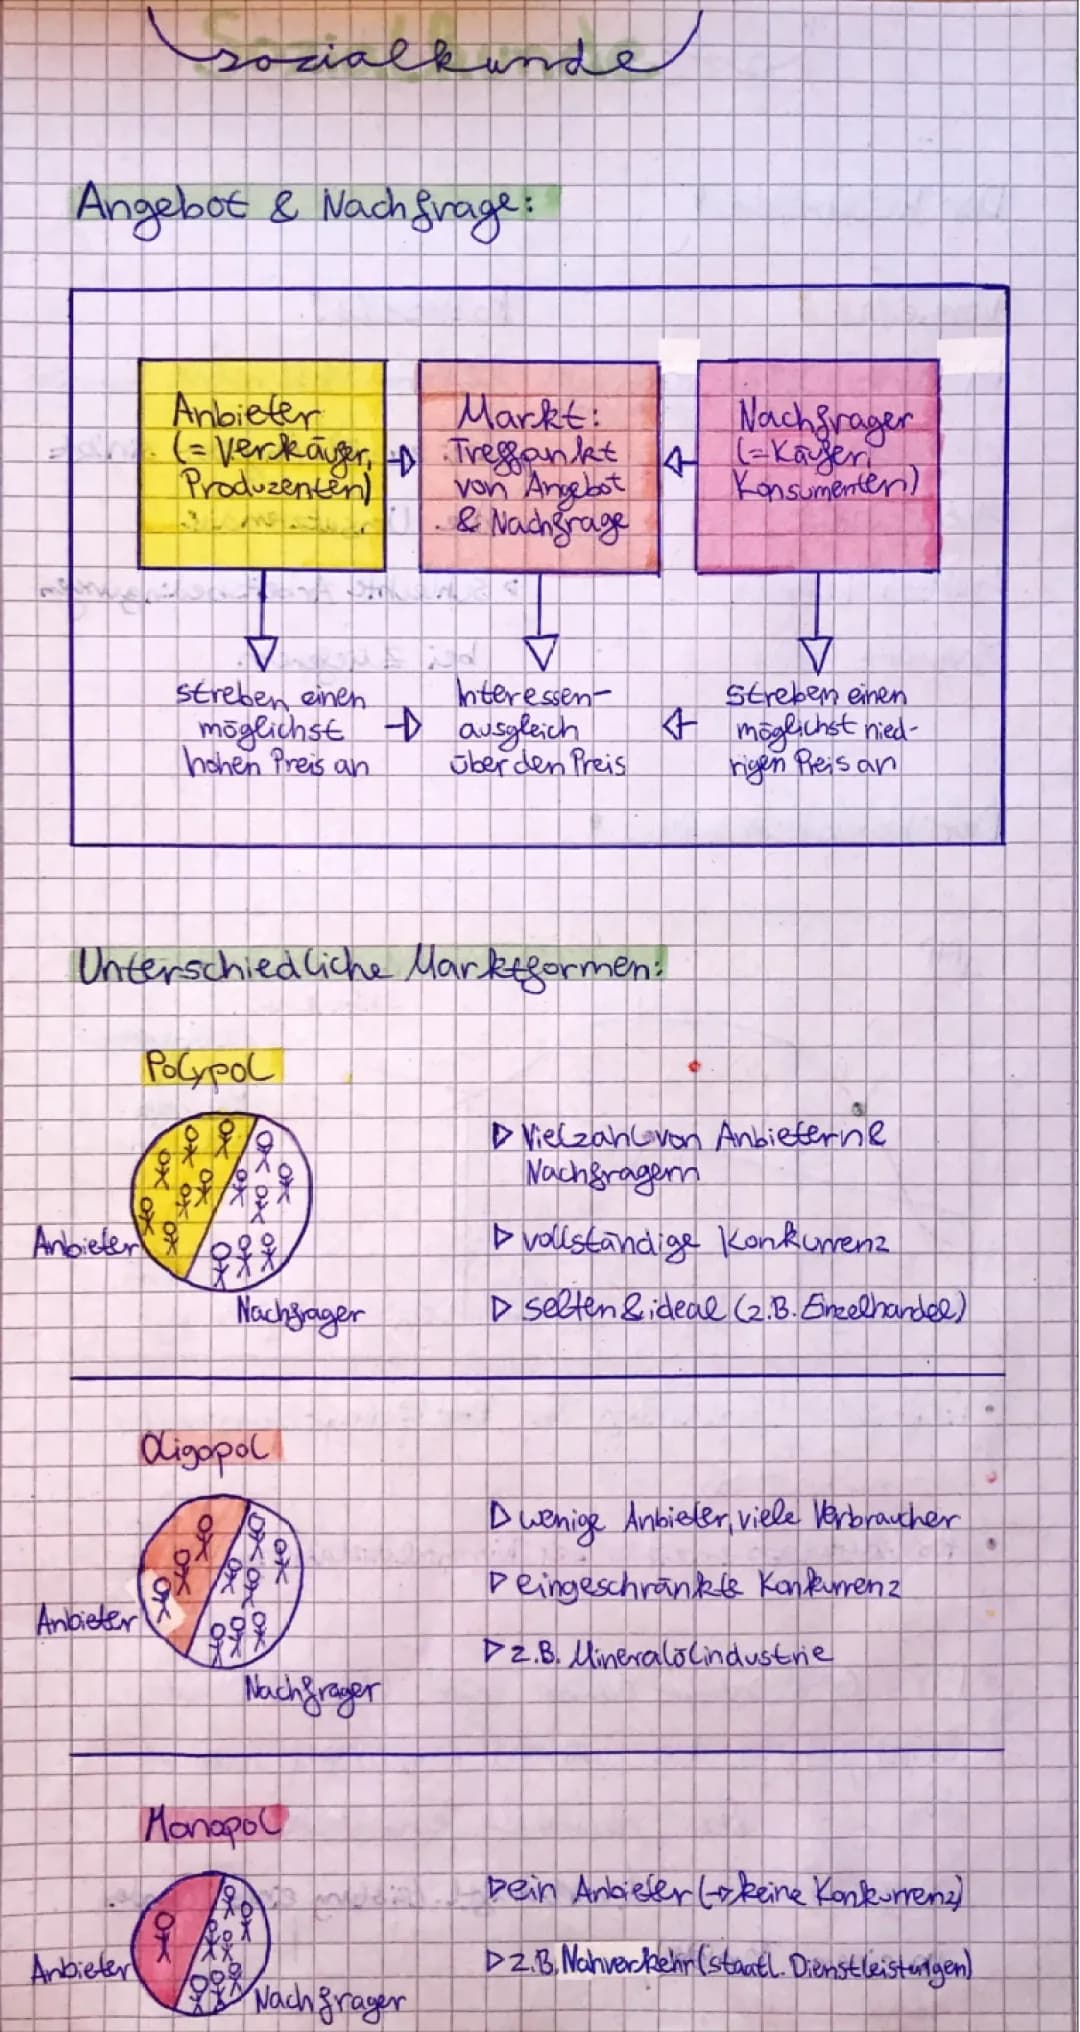 Sozialkunde
Angebot & Nachfrage:
Anbieter
(= Verkäufer,
Produzenten)
Markt:
Treffpunkt
von Angebot
& Nachfrage
Nachfrager
(= Käufer,
Konsumenten)
streben einen
möglichst
hohen Preis an
Interessen-
ausgleich
über den Preis
streben einen
möglichst nied-
rigen Preis an
Unterschiedliche Marktformen:
Polypol
Anbieter
Nachfrager
▷ Vielzahl von Anbietern &
Nachfragern
▷ vollständige Konkurrenz
▷ selten & ideal (z.B. Einzelhandel)
Oligopol
Anbieter
Nachfrager
▷ wenige Anbieter, viele Verbraucher
▷ eingeschränkte Konkurrenz
▷ z.B. Mineralölindustrie
Monopol
Anbieter
Nachfrager
▷ ein Anbieter (→ keine Konkurrenz)
▷ z.B. Nahverkehr (staatl. Dienstleistungen)